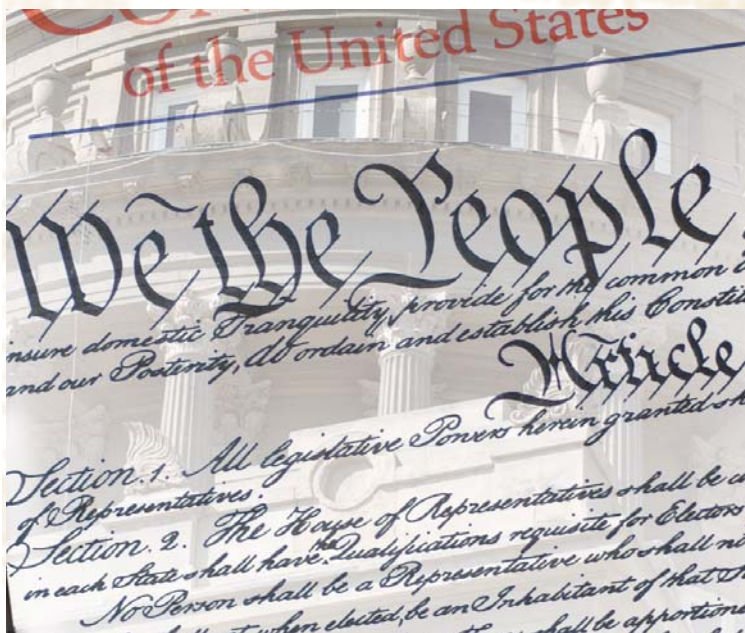 of the United States
We the People
insure domestic Tranquility, provide for the common
and our Posterity, do ordain and establish this
Article
Section. 1. All legislative Powers herein granted
of Representatives.
Section. 2. The House of Representatives shall be
in each State shall have the Qualifications requisite for Electors
No Person shall be a Representative who shall
when elected, be an Inhabitant of that
shall be apportioned